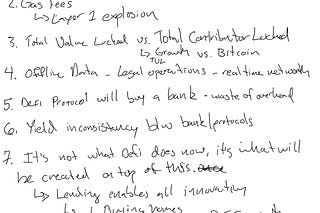 2. Gas fees
↳ Layer 1 explosion
3. Total Value Locked vs. Total Contributor Locked
↳ Growth vs. Bitcoin
TVL
4. Offline Data - Legal operations - real time networth
5. DeFi Protocol will buy a bank - waste of overhead
6. Yield inconsistency btw bank/protocols
7. It's not what Defi does now, it's what will
be created on top of this.
↳ Lending enables all innovation
↳ Buying homes